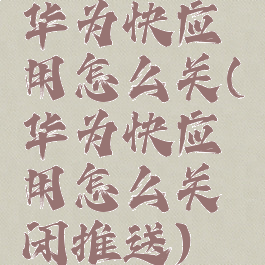 华为快应
用怎么关(
华为快应
用怎么关
闭推送)